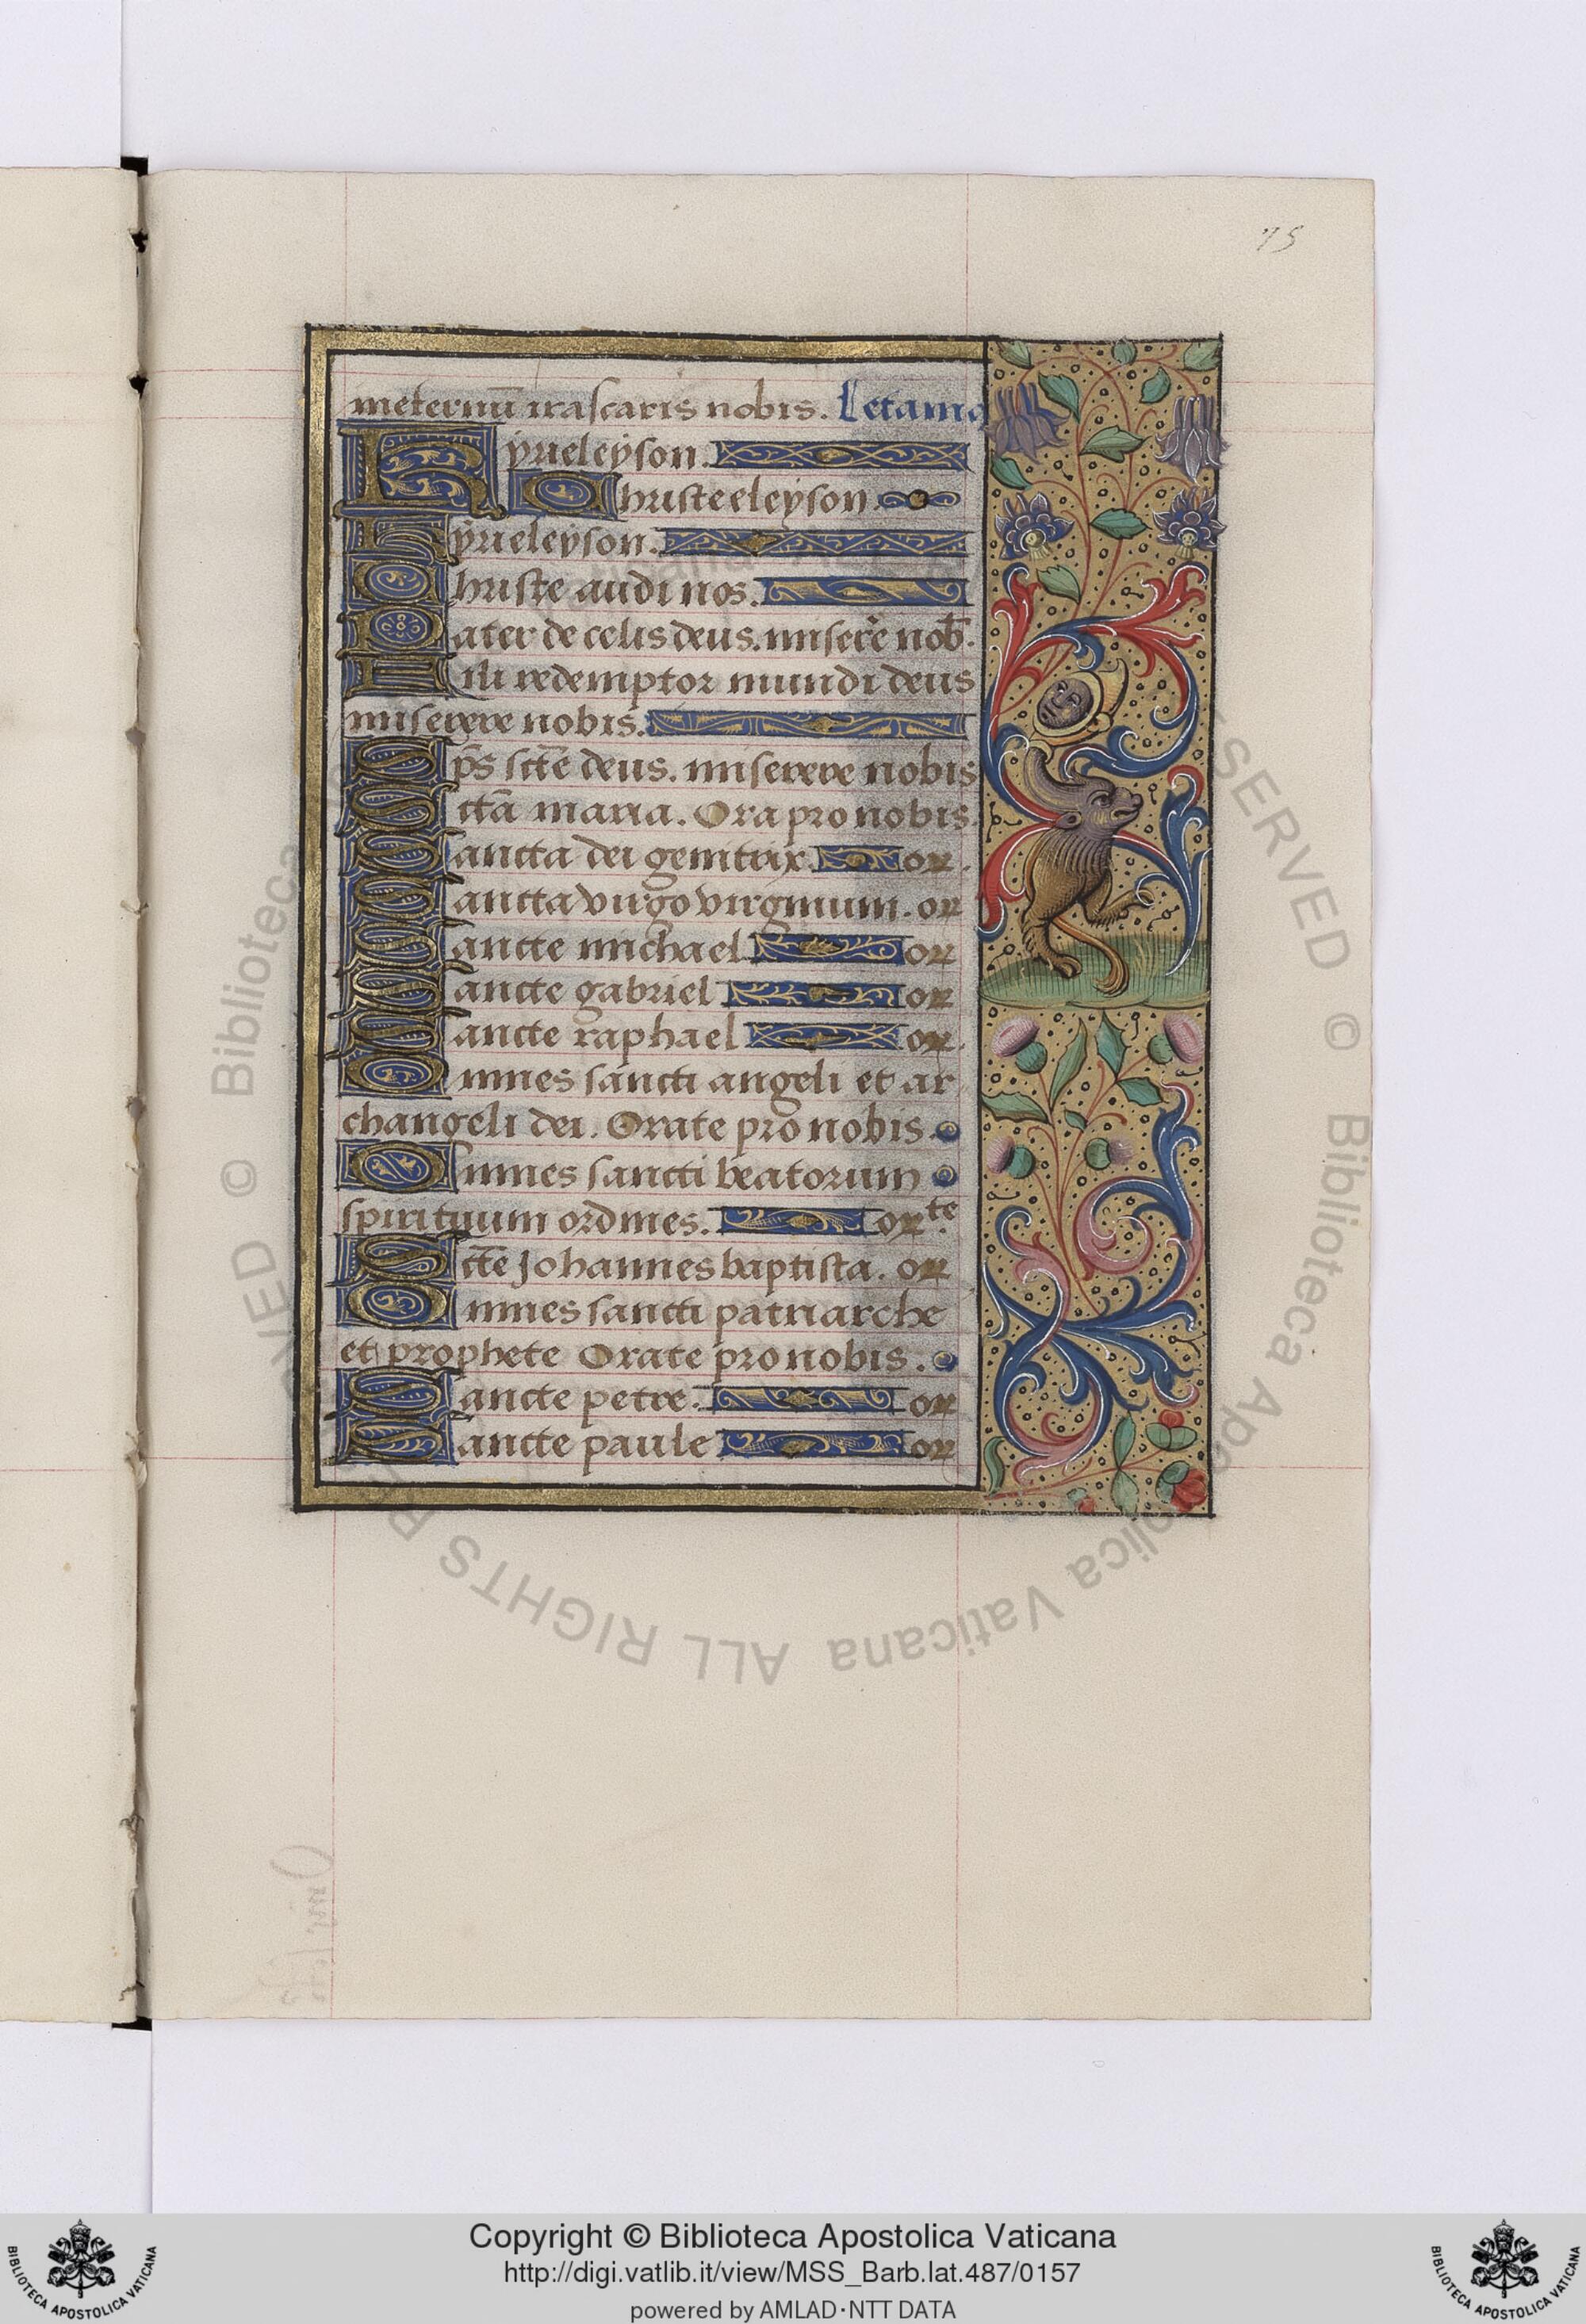 75
ineternū irascaris nobis. Letania
Kyrieleyson.
Christeeleyson
Kyrieleyson.
Christe audi nos.
Pater de celis deus. miserē nob̄.
Fili redemptor mundi deus
miserere nobis.
Sp̄s sctē deus. miserere nobis
Sctā maria. Ora pro nobis.
Sancta dei genitrix. or.
Sancta virgo virginum. or
Sancte michael or
Sancte gabriel or
Sancte raphael or.
Omnes sancti angeli et ar
changeli dei. Orate pro nobis.
Omnes sancti beatorum
spirituum ordines. orte.
Sctē Johannes baptista. or
Omnes sancti patriarche
et prophete Orate pro nobis.
Sancte petre. or
Sancte paule or
© Biblioteca Apostolica Vaticana ALL RIGHTS RESERVED
Copyright © Biblioteca Apostolica Vaticana
http://digi.vatlib.it/view/MSS_Barb.lat.487/0157
powered by AMLAD·NTT DATA
BIBLIOTECA APOSTOLICA VATICANA
BIBLIOTECA APOSTOLICA VATICANA